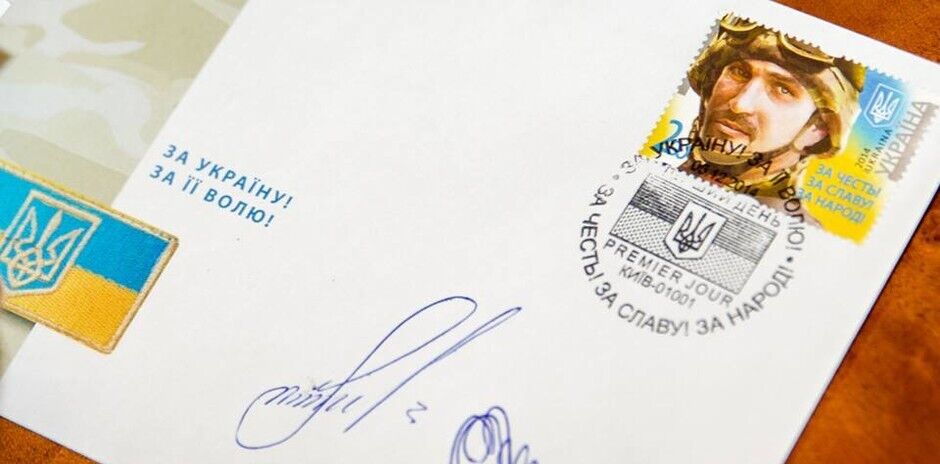 ЗА УКРАЇНУ!
ЗА ЇЇ ВОЛЮ!
2014
UKRAINA
УКРАЇНА
ЗА ЧЕСТЬ!
ЗА СЛАВУ!
ЗА НАРОД!
ЗА УКРАЇНУ! ЗА ЇЇ ВОЛЮ!
ДЕНЬ
PREMIER JOUR
КИЇВ-01001
ЗА ЧЕСТЬ! ЗА СЛАВУ! ЗА НАРОД!